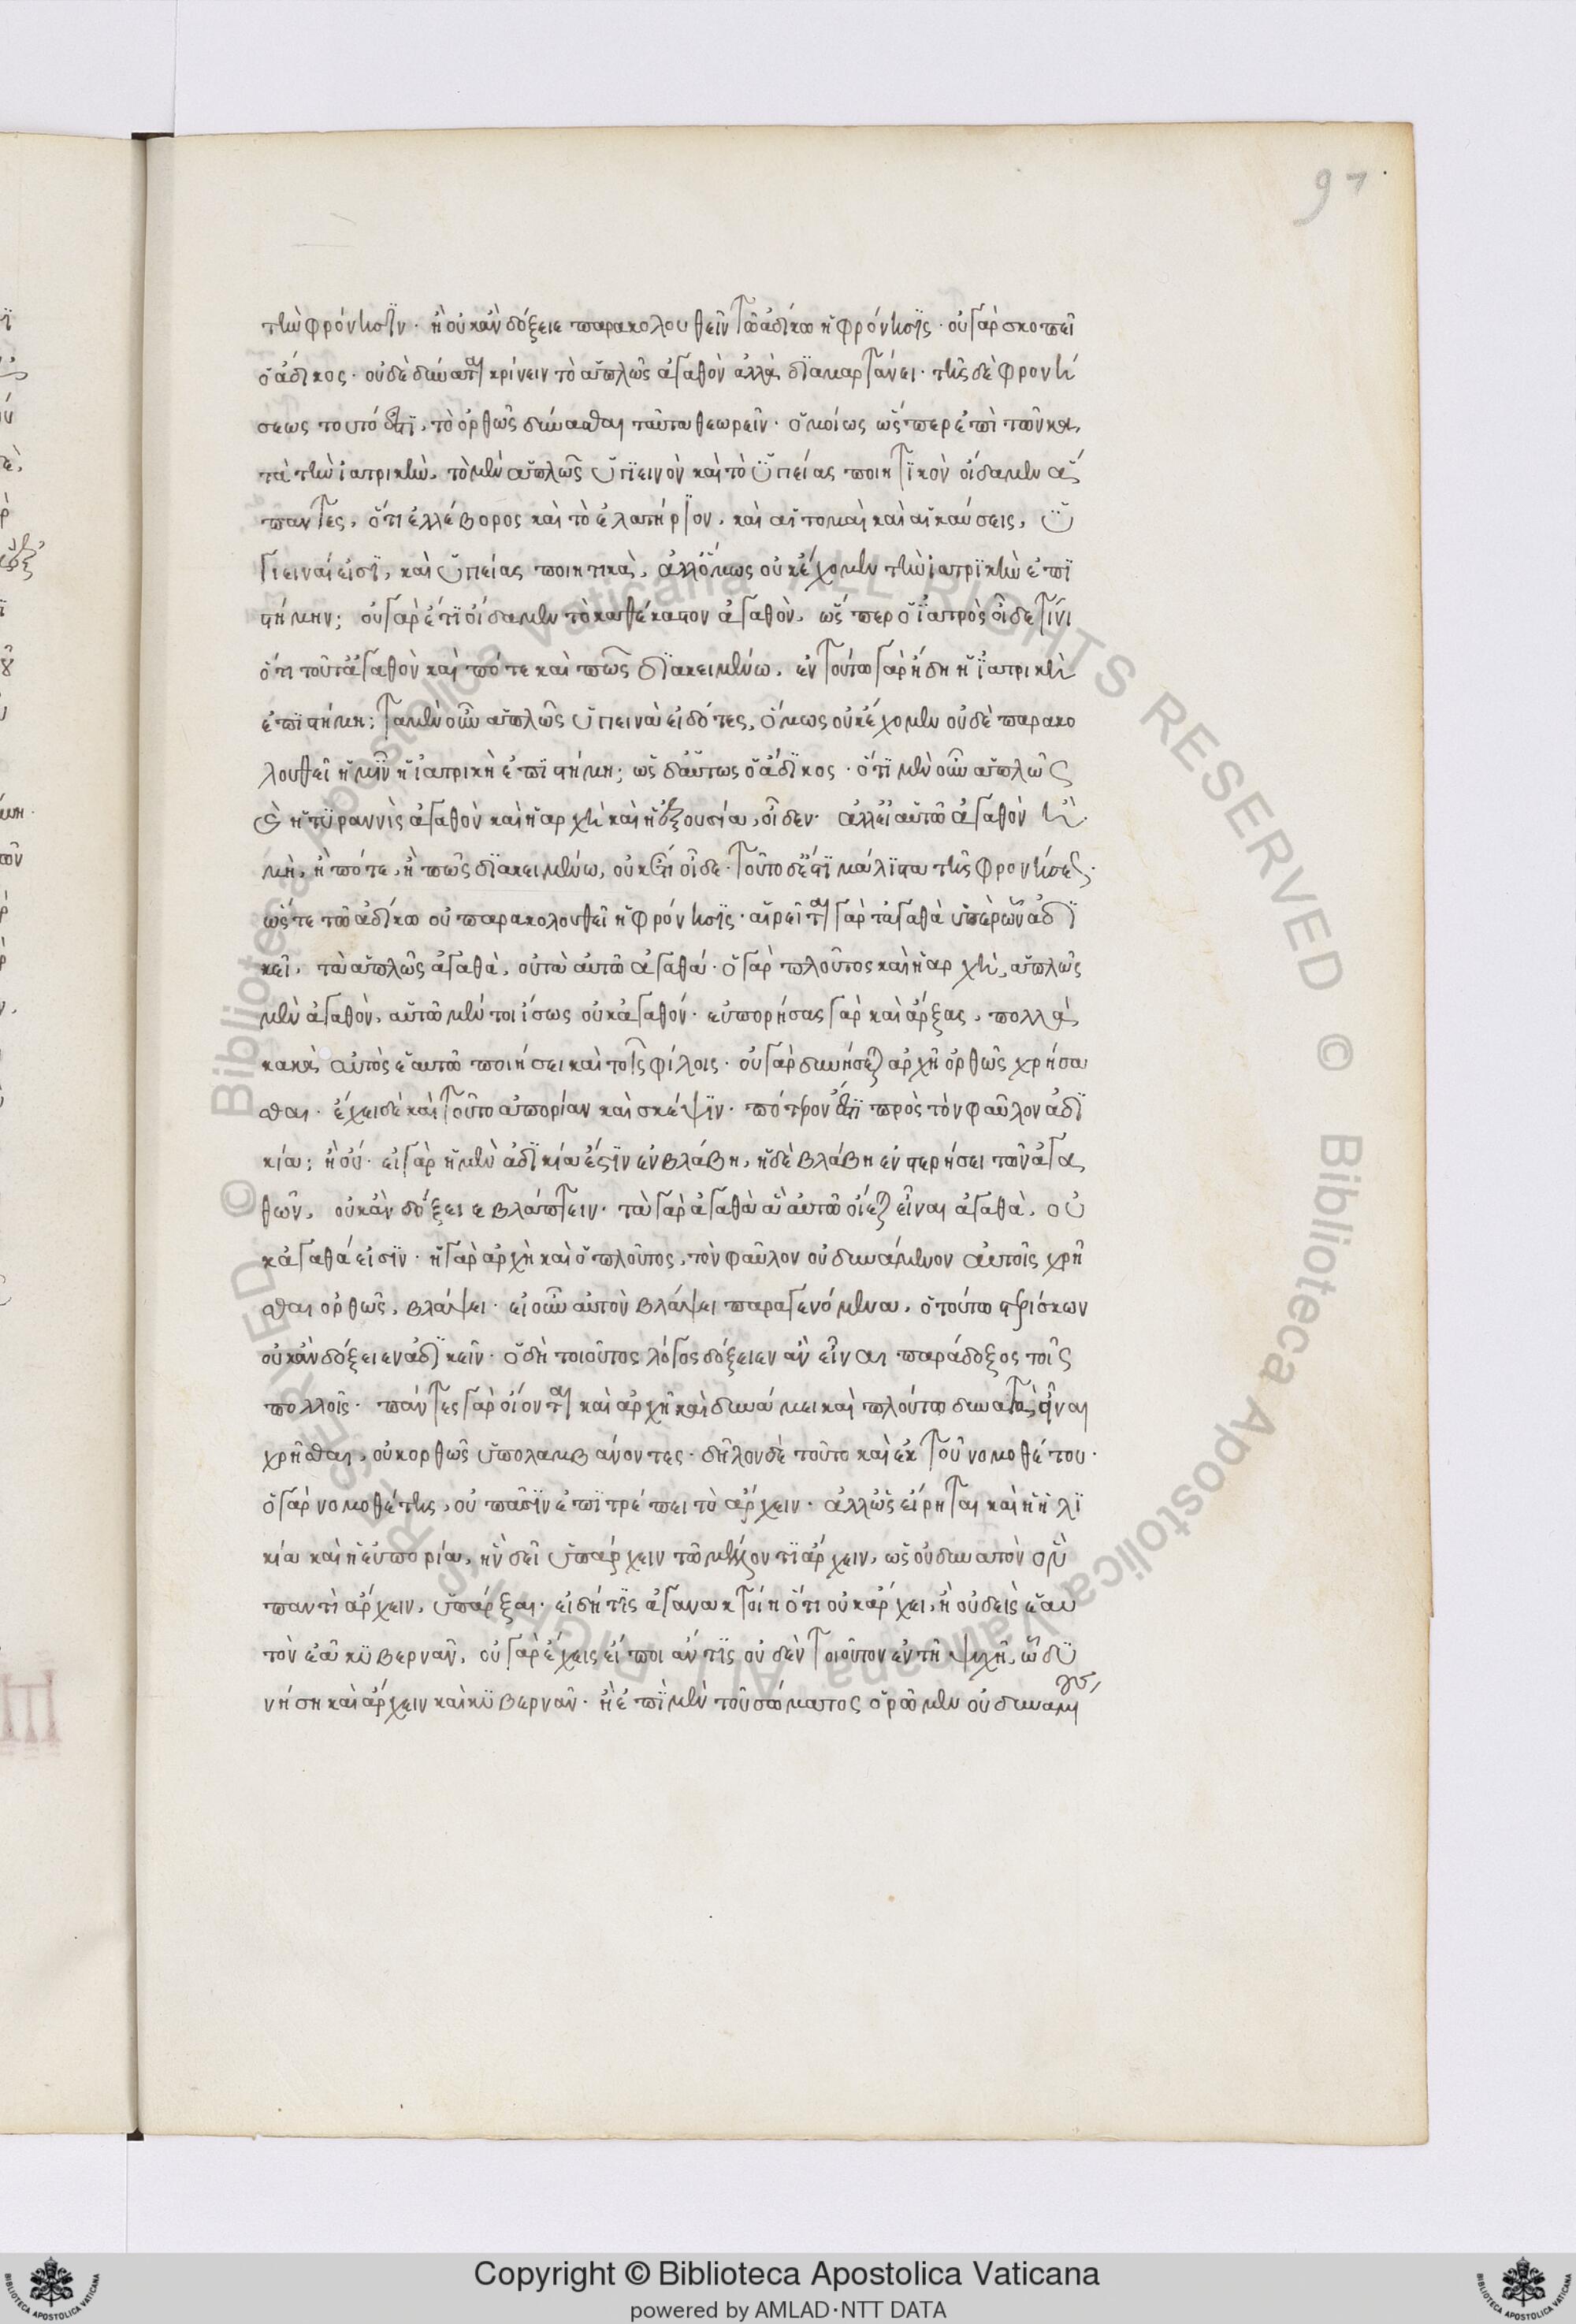 97
τὴν φρόνησϊν· ἢ οὐκ ἂν δόξειε παρακολουθεῖν τῶ ἀδίκω ἡ φρόνησϊς· οὐ γὰρ σκοπεῖ
ὁ ἄδικος· οὐδὲ δύναται κρίνειν τὸ ἁπλῶς ἀγαθὸν ἀλλὰ δϊαμαρτάνει· τῆς δὲ φρονή
σεως τουτό ἐστϊ, τὸ ὀρθῶς δύνασθαι ταῦτα θεωρεῖν· ὁμοίως ὥσπερ ἐπὶ τῶν κα
τὰ τὴν ἰατρικὴν, τὸ μὲν ἁπλῶς ὑγϊεινὸν καὶ τὸ ὑγείας ποιητϊκὸν οἴδαμεν ἅ
παντες, ὅτι ἐλλέβορος καὶ τὸ ἐλατήρϊον, καὶ αἱ τομαὶ καὶ αἱ καύσεις, ὑ
γιειναί εἰσϊ, καὶ ὑγείας ποιητικὰ, ἀλλ' ὅμως οὐκ ἔχομεν τὴν ἰατρϊκὴν ἐπϊ
στήμην; οὐ γὰρ ἔτϊ οἴδαμεν τὸ καθέκαστον ἀγαθὸν, ὥσπερ ὁ ἰατρὸς οἶδε τίνι
ὅτι τοῦτ' ἀγαθὸν καὶ πότε καὶ πῶς δϊακειμένω, ἐν τούτω γὰρ ἤδη ἡ ἰατρικὴ
ἐπϊστήμη; τὰ μὲν οὖν ἁπλῶς ὑγιεινὰ εἰδότες, ὅμως οὐκ ἔχομεν οὐδὲ παρακο
λουθεῖ ἡμῖν ἡ ἰατρικὴ ἐπϊστήμη; ὡσδαύτως ὁ ἄδϊκος· ὅτϊ μὲν οὖν ἁπλῶς
καὶ ἡ τϋραννὶς ἀγαθὸν καὶ ἡ ἀρχὴ καὶ ἡ ἐξουσία, οἶδεν· ἀλλ' εἰ αὑτῶ ἀγαθὸν ἢ
μὴ, ἢ πότε, ἢ πῶς δϊακειμένω, οὐκέτι οἶδε· τοῦτο δέ ἐστϊ μάλϊστα τῆς φρονήσεως·
ὥστε τῶ ἀδίκω οὐ παρακολουθεῖ ἡ φρόνησϊς· αἱρεῖται γὰρ τἀγαθὰ ὑπὲρ ὧν ἀδϊ
κεῖ, τὰ ἁπλῶς ἀγαθὰ, οὐ τὰ αὑτῶ ἀγαθά· ὁ γὰρ πλοῦτος καὶ ἡ ἀρχὴ, ἁπλῶς
μὲν ἀγαθὸν, αὑτῶ μέν τοι ἴσως οὐκ ἀγαθόν· εὐπορήσας γὰρ καὶ ἄρξας, πολλὰ
κακὰ αὐτὸς ἑαυτῶ ποιήσει καὶ τοῖς φίλοις· οὐ γὰρ δυνήσεται ἀρχῇ ὀρθῶς χρήσα
σθαι· ἔχει δὲ καὶ τοῦτο ἀπορίαν καὶ σκέψϊν· πότερον ἔστϊ πρὸς τὸν φαῦλον ἀδϊ
κία; ἢ οὔ· εἰ γὰρ ἡ μὲν ἀδϊκία ἐστὶν ἐν βλάβη, ἡ δὲ βλάβη ἐν στερήσει τῶν ἀγα
θῶν, οὐκ ἂν δόξειε βλάπτειν· τὰ γὰρ ἀγαθὰ ἃ αὑτῶ οἴεται εἶναι ἀγαθὰ, οὐ
κ ἀγαθά εἰσϊν· ἡ γὰρ ἀρχὴ καὶ ὁ πλοῦτος, τὸν φαῦλον οὐ δυνάμενον αὐτοῖς χρῆ
σθαι ὀρθῶς, βλάψει· εἰ οὖν αὐτὸν βλάψει παραγενόμενα, ὁ τούτω στερίσκων
οὐκ ἂν δόξειεν ἀδϊκεῖν· ὁ δὴ τοιοῦτος λόγος δόξειεν ἂν εἶναι παράδοξος τοῖς
πολλοῖς· πάντες γὰρ οἴονται καὶ ἀρχῆ καὶ δυνάμει καὶ πλούτω δυνατὰ εἶναι
χρῆσθαι, οὐκ ορθῶς ὑπολαμβάνοντες· δῆλον δὲ τοῦτο καὶ ἐκ τοῦ νομοθέτου·
ὁ γὰρ νομοθέτης, οὐ πᾶσϊν ἐπϊτρέπει τὸ ἄρχειν· ἀλλ' ὡς εἴρηται καὶ ἡ ἡλϊ
κία καὶ ἡ εὐπορία, ἣν δεῖ ὑπάρχειν τῶ μέλλοντϊ ἄρχειν, ὡς οὐ δυνατὸν ὂν
παντὶ ἄρχειν, ὑπάρξαι· εἰ δή τϊς ἀγανακτοίη ὅτι οὐκ ἄρχει, ἢ οὐδεὶς ἑαυ
τὸν ἐᾶ κϋβερνᾶν, οὐ γὰρ ἔχεις εἴποι ἄν τϊς οὐδὲν τοιοῦτον ἐν τῆ ψυχῆ, ὧ δϋ
νήση καὶ ἄρχειν καὶ κϋβερνᾶν· ἢ ἐπϊ μὲν τοῦ σώματος ὁρῶμεν οὐ δυναμ